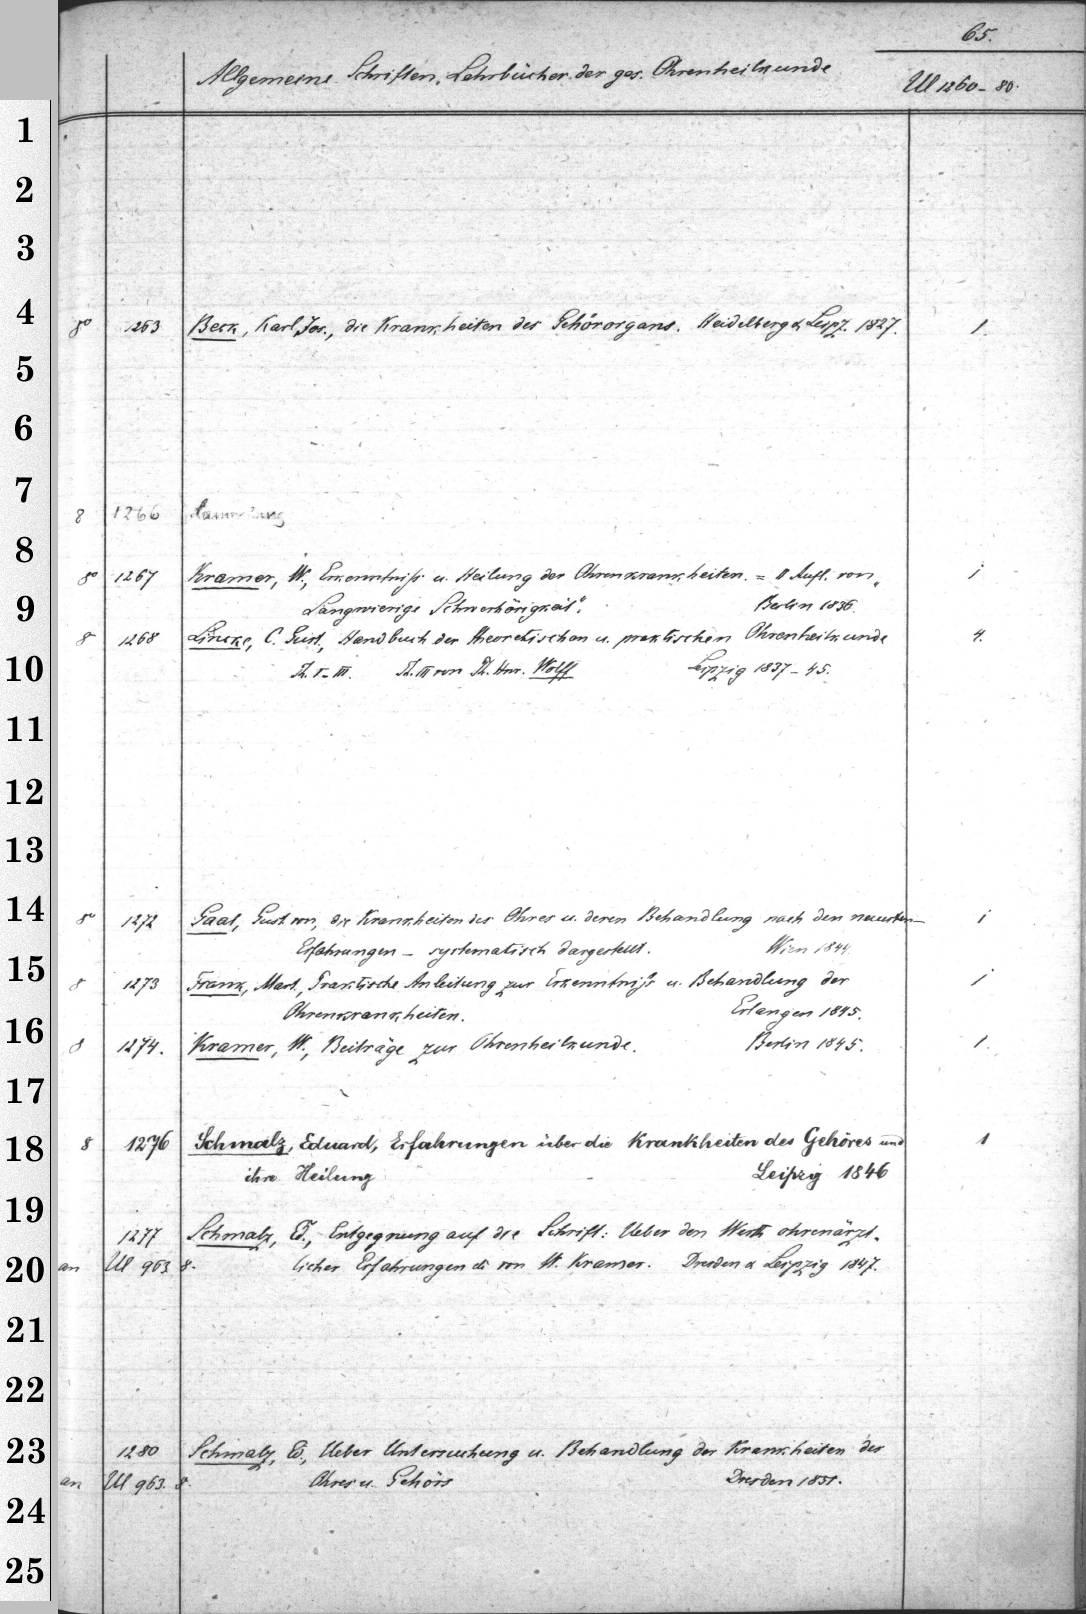 65.
Allgemeine Schriften, Lehrbücher der ges. Ohrenheilkunde
Ul 1260-80.
1
2
3
4
8° 1263 Beck, Karl Jos., die Krankheiten des Gehörorgans. Heidelberg & Leipz. 1827. 1.
5
6
7
8 1266
8
8° 1267 Kramer, W., Erkenntniß u. Heilung der Ohrenkrankheiten. = II Aufl. von „ 1
9
Langwierige Schwerhörigkeit". Berlin 1836.
8 1268 Lincke, C. Gust., Handbuch der theoretischen u. praktischen Ohrenheilkunde 4.
10
Th. I-III. Th. III von Ph. Hnr. Wolff Leipzig 1837-45.
11
12
13
14
8° 1272 Gaal, Gust. von, die Krankheiten des Ohres u. deren Behandlung nach den neuesten 1
Erfahrungen - systematisch dargestellt. Wien 1844
15
8 1273 Frank, Mart., Praktische Anleitung zur Erkenntniß u. Behandlung der 1
Ohrenkrankheiten. Erlangen 1845.
16
8 1274. Kramer, W., Beiträge zur Ohrenheilkunde. Berlin 1845. 1.
17
18
8 1276 Schmalz, Eduard, Erfahrungen über die Krankheiten des Gehöres und 1
ihre Heilung Leipzig 1846
19
1277 Schmalz, Ed., Entgegnung auf die Schrift: Ueber den Werth ohrenärzt-
20
an Ul 963 8. licher Erfahrungen etc von W. Kramer. Dresden & Leipzig 1847.
21
22
23
1280 Schmalz, Ed., Ueber Untersuchung u. Behandlung der Krankheiten des
an Ul 963. 8. Ohres u. Gehörs Dresden 1851.
24
25